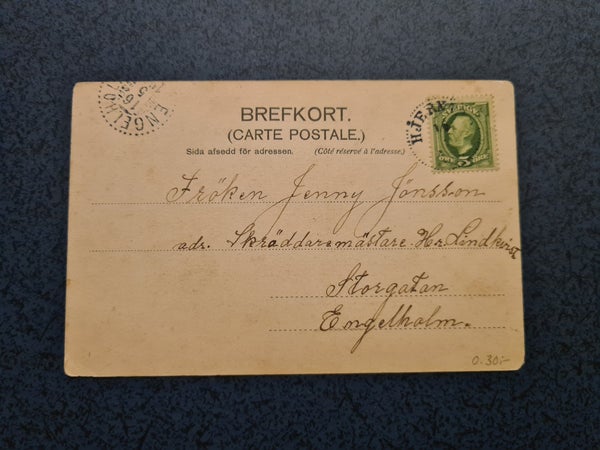 ENGELHOLM
BREFKORT.
(CARTE POSTALE.)
Sida afsedd för adressen. (Côté réservé à l'adresse.)
SVERIGE
5
ÖRE
Fröken Jenny Jönsson
adr. Skräddaremästare Hr Lindkvist
Storgatan
Engelholm.
0.30:-